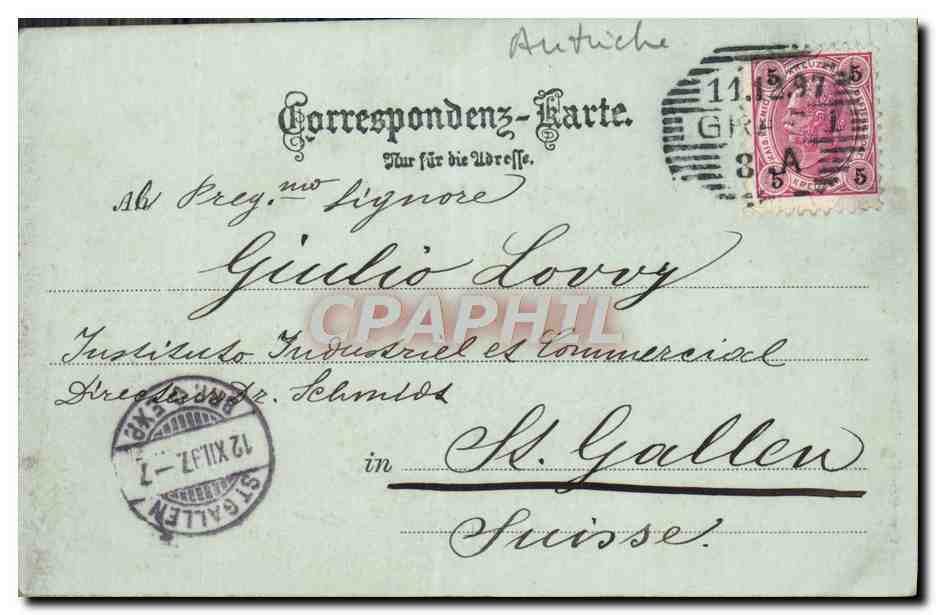 Autriche
Correspondenz-Karte.
Nur für die Adresse.
5 5
11.12.97
GRAZ 1
8 A
5 5
Al Preg.mo Signore
Giulio Lovvy
CPAPHTL
Instituto Industriel et Commercial
Directeur Dr. Schmidt
in St. Gallen
Suisse.
BRF. EXP.
12 XII.97.–7
ST. GALLEN